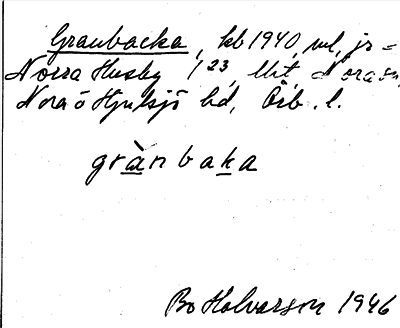 Granbacka, kb 1940, vl, jr =
Norra Husby 1 23, Nora sn,
Nora o Hjulsjö bd, Örb. l.
grànbaka
Bo Halvarson 1946